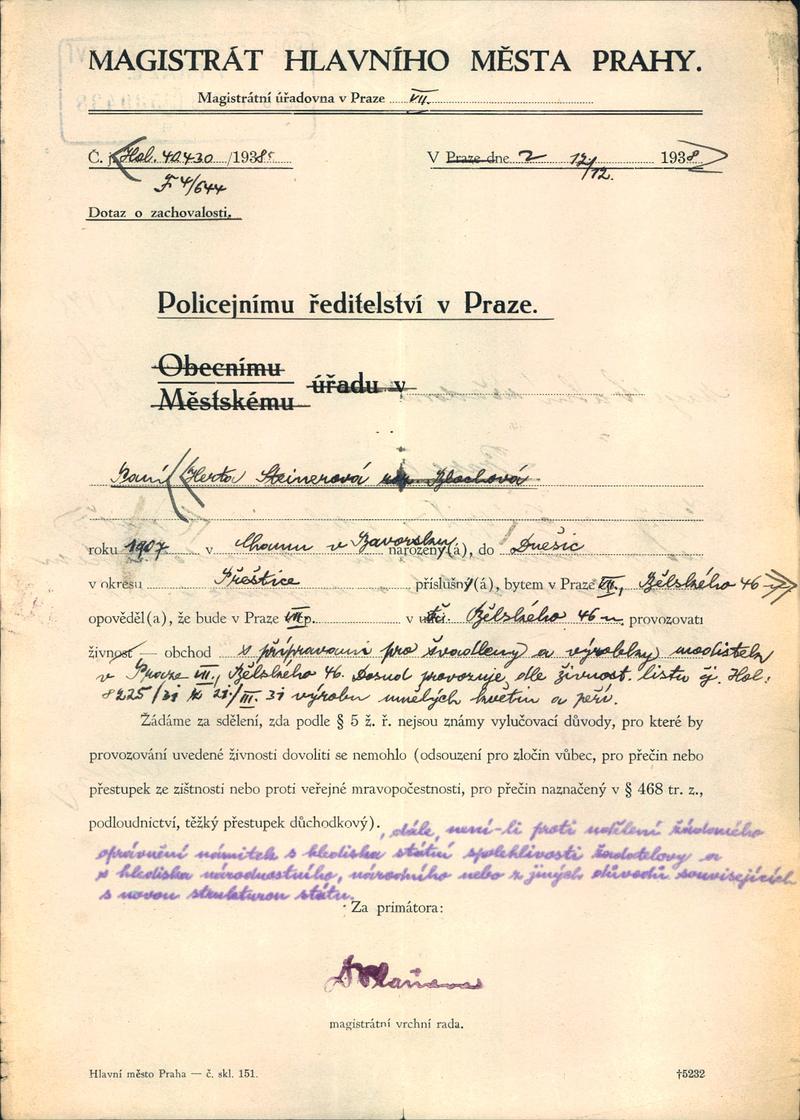 MAGISTRÁT HLAVNÍHO MĚSTA PRAHY.
Magistrátní úřadovna v Praze VII.
Č. j. Hol. 40430 /1938
V Praze dne 2 12/12. 1938
F 4/644
Dotaz o zachovalosti.
Policejnímu ředitelství v Praze.
Obecnímu
Městskému úřadu v
Paní Herta Steinerová roz. Blochová
roku 1907 v Chamu v Bavorsku narozený(á), do Dnešic
v okresu Přeštice příslušný(á), bytem v Praze VII., Bělského 46
opověděl(a), že bude v Praze VII. v Bělského 46 provozovati
živnost — obchod s přípravami pro švadleny a výrobky modistek
v Praze VII., Bělského 46. Dosud provozuje dle živnost. listu čj. Hol.
8225/31 z 21/III. 31 výrobu umělých květin a peří.
Žádáme za sdělení, zda podle § 5 ž. ř. nejsou známy vylučovací důvody, pro které by
provozování uvedené živnosti dovoliti se nemohlo (odsouzení pro zločin vůbec, pro přečin nebo
přestupek ze zištnosti nebo proti veřejné mravopočestnosti, pro přečin naznačený v § 468 tr. z.,
podloudnictví, těžký přestupek důchodkový)., dále, není-li proti udělení žádaného
oprávnění námitek s hlediska státní spolehlivosti žadatelovy a
s hlediska národnostního, národního nebo z jiných důvodů souvisejících
s novou strukturou státu.
Za primátora:
magistrátní vrchní rada.
Hlavní město Praha — č. skl. 151.
†5232